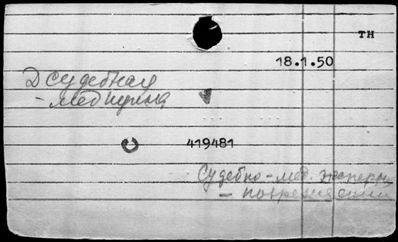 TH
18.1.50
Д Судебная
- медицина
419481
Судебно-мед. эксперт.
-